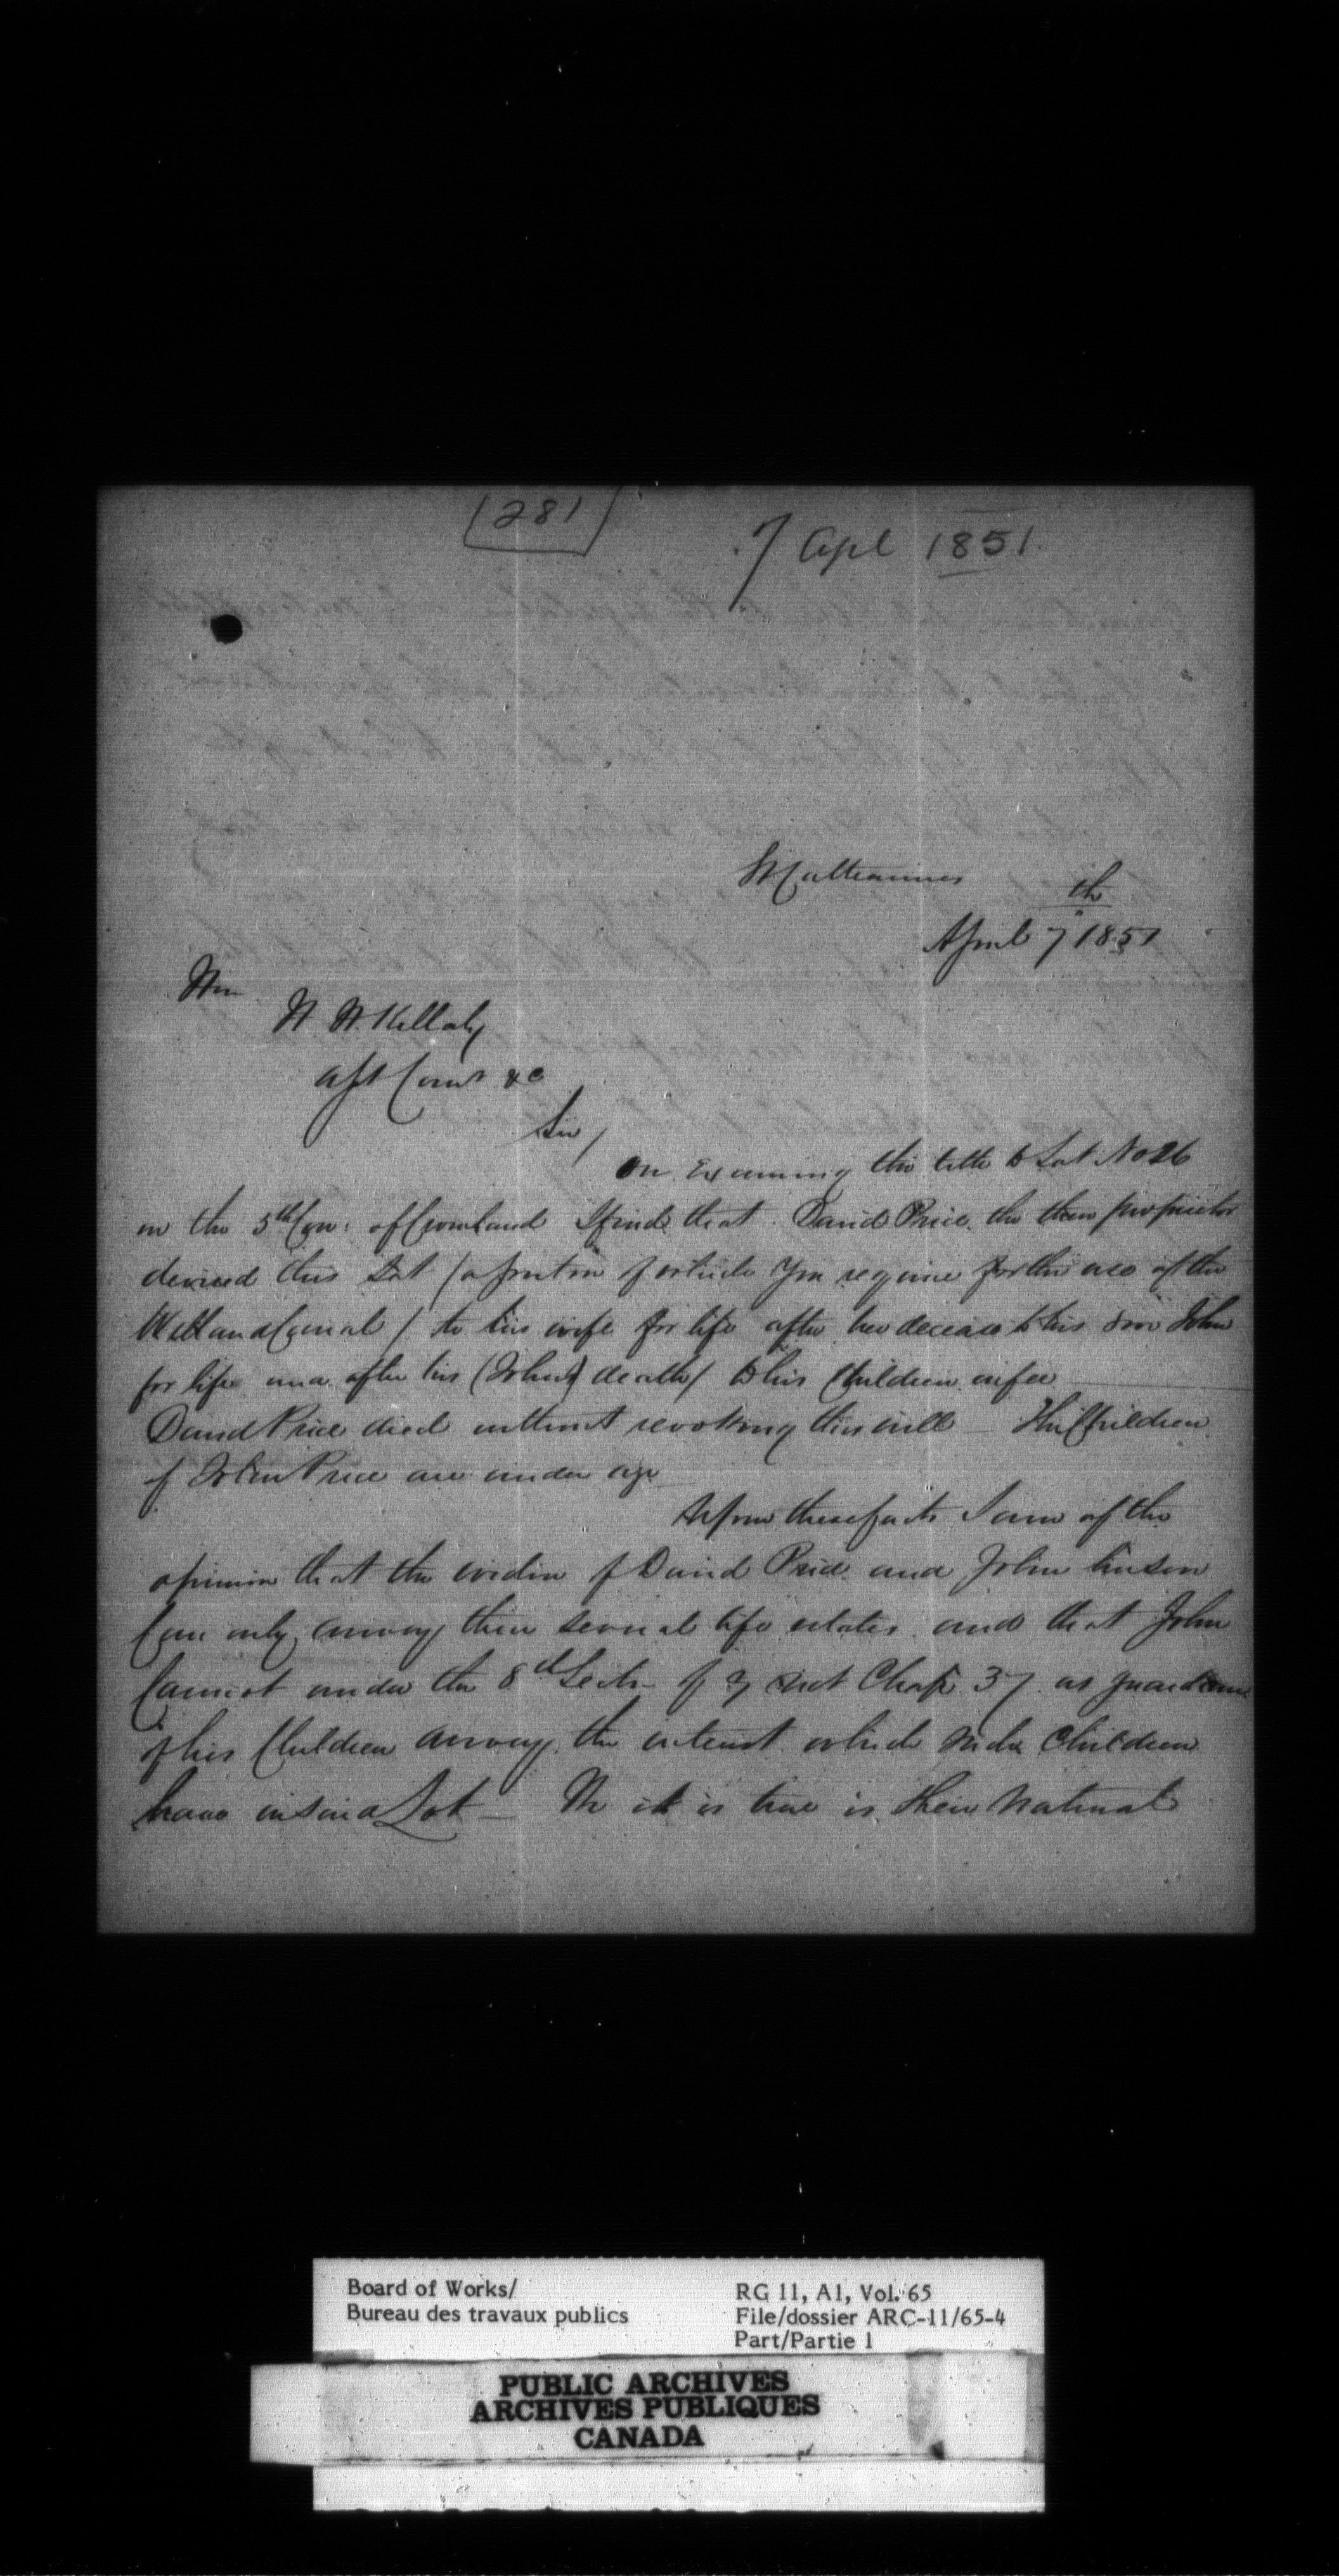 (281)
7 Apl 1851
St Catharines
April 7th 1851
Hon
H. H. Killaly
Asst Comr &c
Sir,
On Examining the title to Lot No 26
in the 5th Con: of Crowland I find that David Price the then proprietor
devised this Lot (a portion of which you require for the use of the
Welland Canal) to his wife for life after her decease to his son John
for life and after his (Johns) death to his Children in fee
David Price died without revoking this will – The Children
of John Price are under age
Upon these facts I am of the
opinion that the widow of David Price and John his son
Can only convey their several life estates and that John
Cannot under the 8th Sectn of 9 Vict Chap 37 as guardian
of his Children convey the interest which such Children
have in said Lot – He it is true is their natural
Board of Works/
Bureau des travaux publics
RG 11, A1, Vol. 65
File/dossier ARC-11/65-4
Part/Partie 1
PUBLIC ARCHIVES
ARCHIVES PUBLIQUES
CANADA